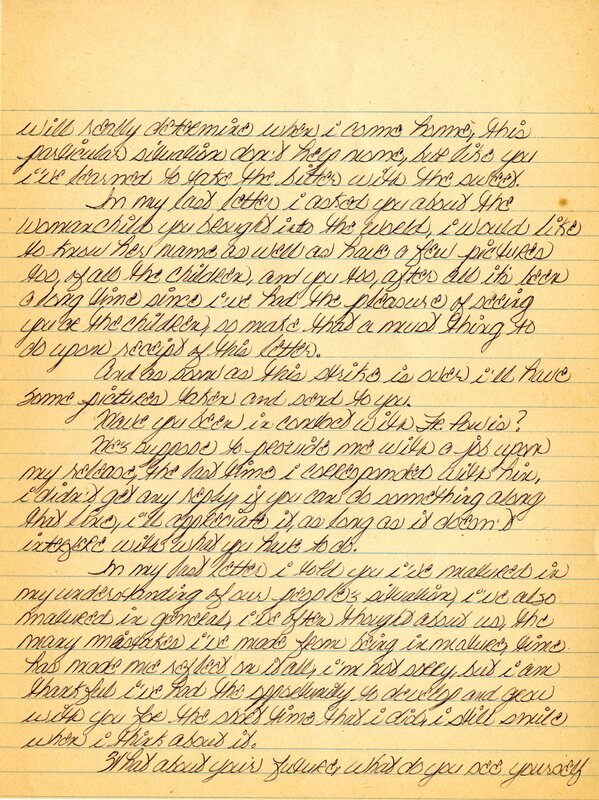 will really determine when i come home, this
particular situation don't help none, but like you
i've learned to take the bitter with the sweet.
In my last letter i asked you about the
womanchild you brought into the world, i would like
to know her name as well as have a few pictures
too, of all the children, and you too, after all it's been
a long time since i've had the pleasure of seeing
you or the children, so make that a must thing to
do upon receipt of this letter.
And as soon as this strike is over i'll have
some pictures taken and send to you.
Have you been in contact with
He's suppose to provide me with a job upon
my release, the last time i corresponded with him,
i didn't get any reply if you can do something along
that line, i'll appreciate it as long as it doesn't
interfere with what you have to do.
In my last letter i told you i've matured in
my understanding of our people's situation, i've also
matured in general, i've often thought about us, the
many mistakes i've made from being in mature, time
has made me reflect on it all, i'm not sorry, but i am
thankful i've had the opportunity to develop and grow
with you for the short time that i did, i still smile
when i think about it.
What about your future, what do you see yourself